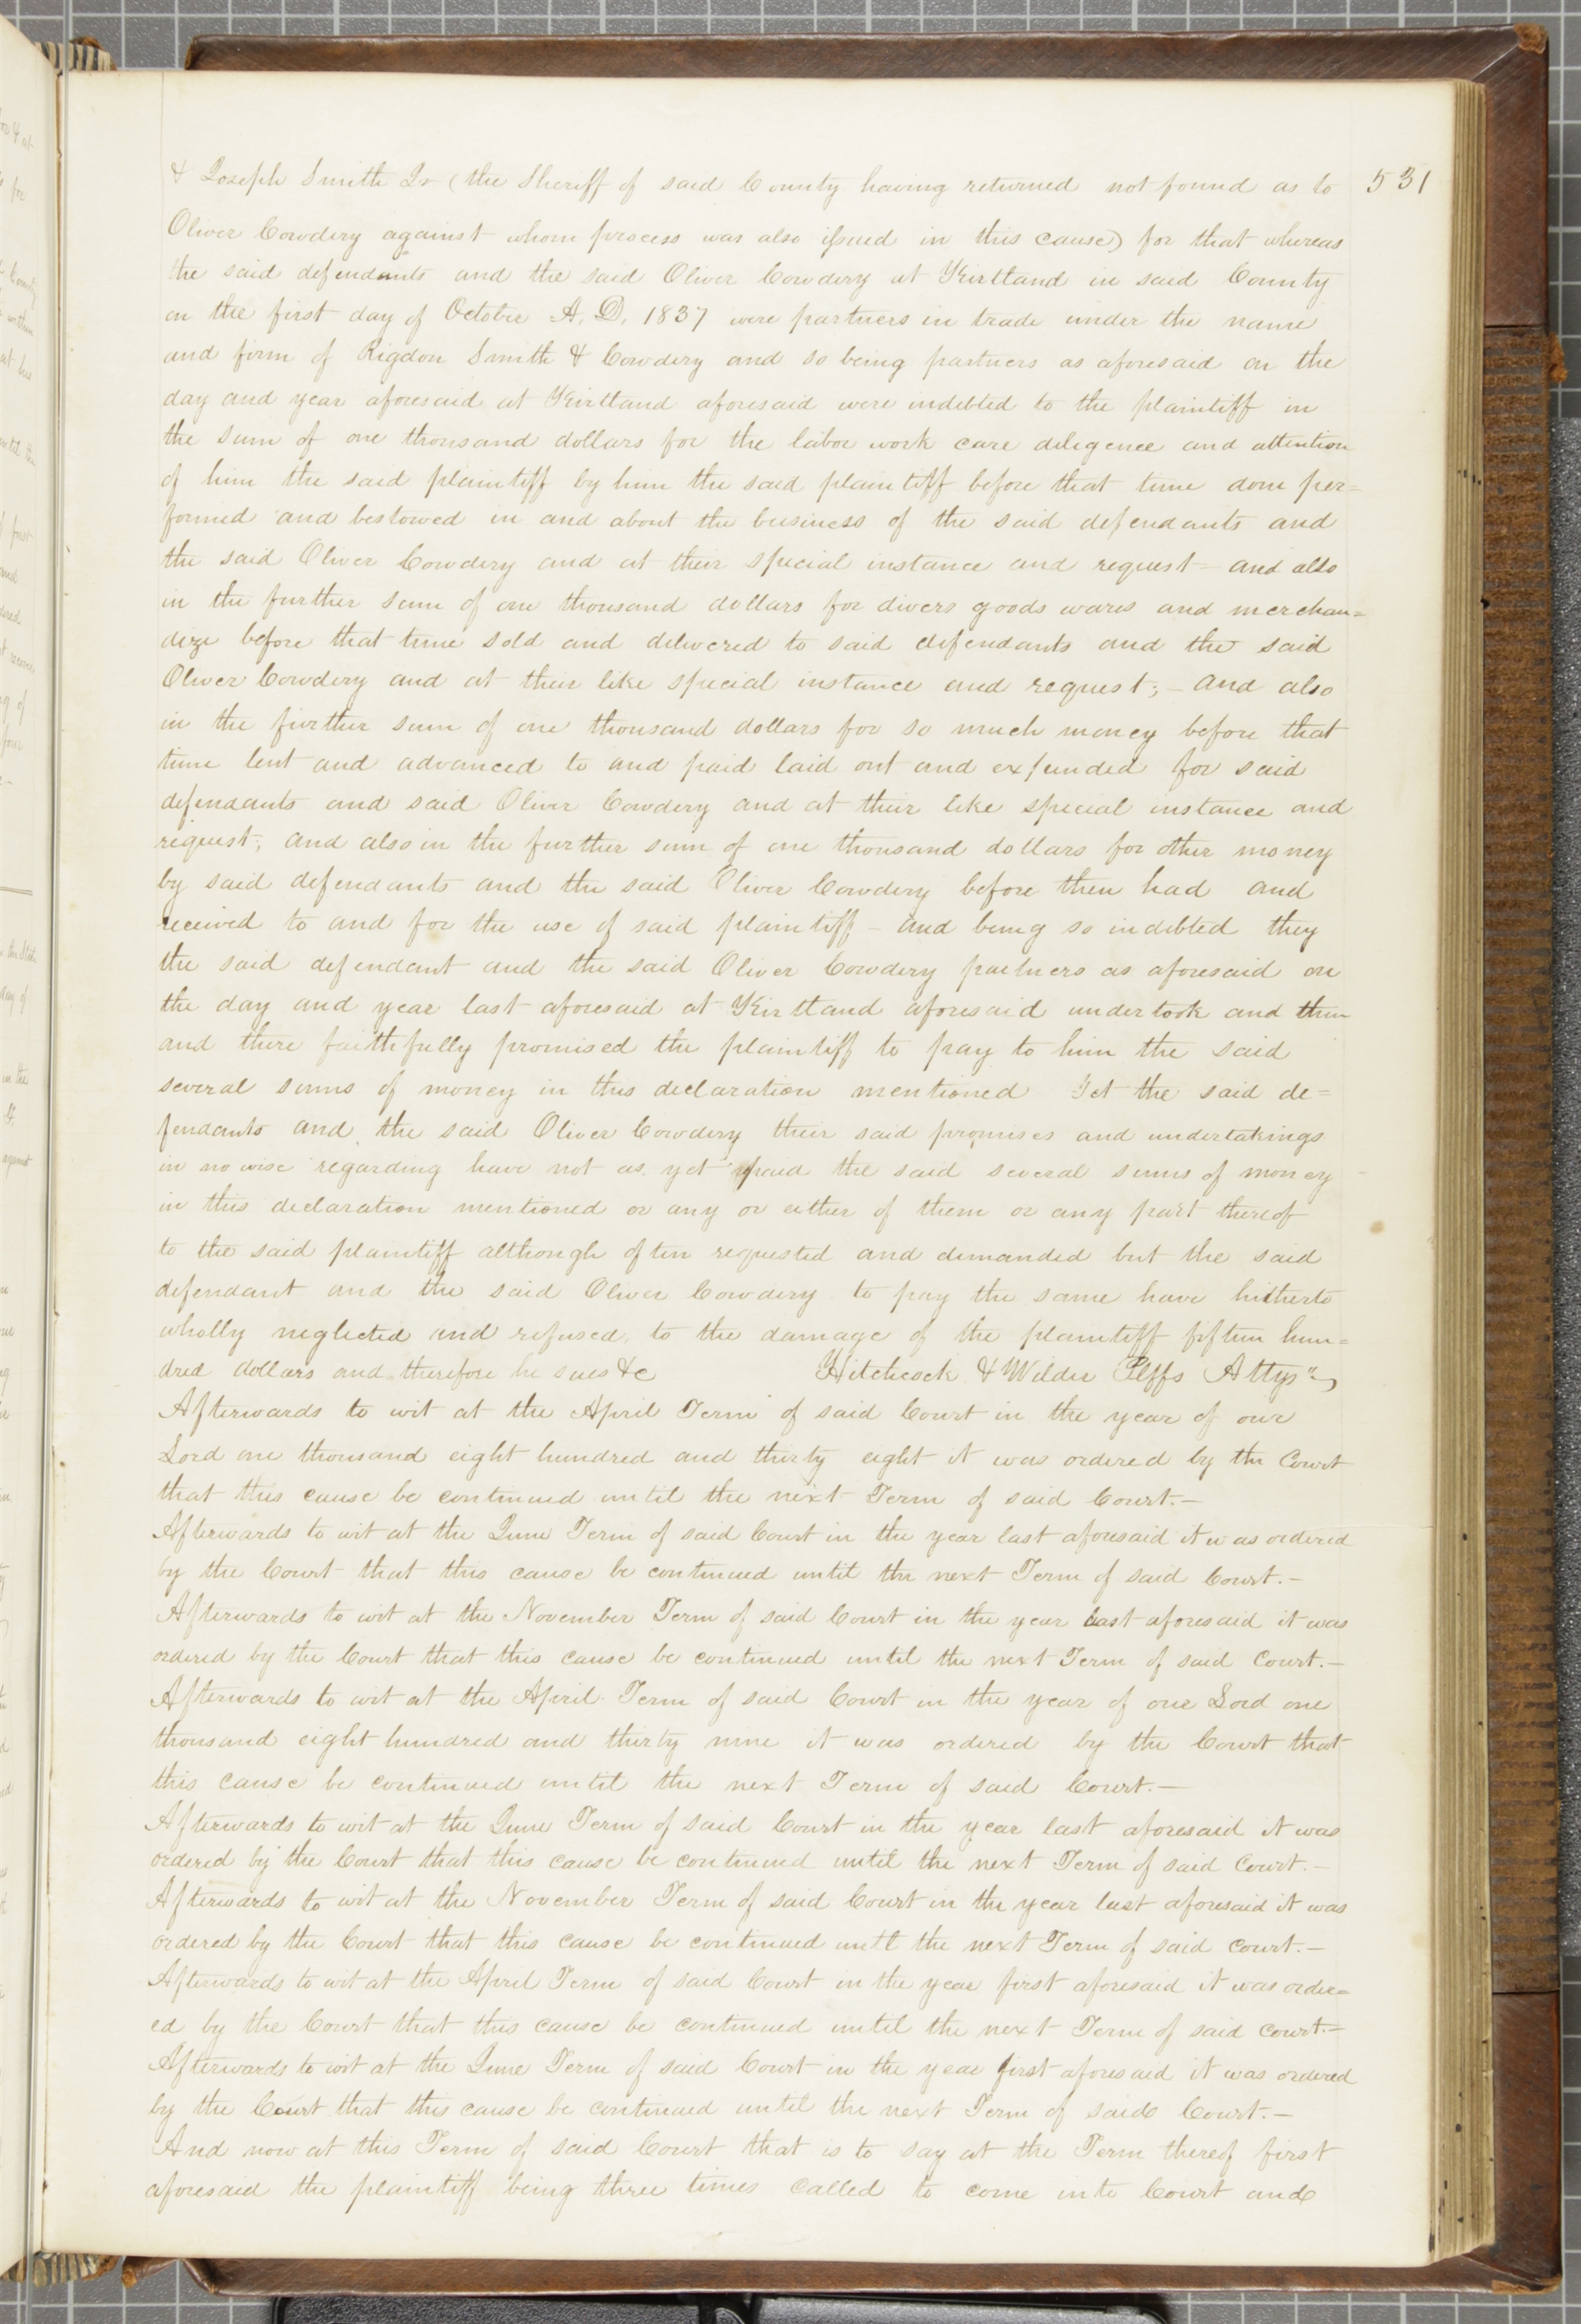 & Joseph Smith Jr (the Sheriff of said County having returned not found as to 531
Oliver Cowdery against whom process was also issued in this cause) for that whereas
the said defendants and the said Oliver Cowdery at Kirtland in said County
on the first day of October A. D. 1837 were partners in trade under the name
and firm of Rigdon Smith & Cowdery and so being partners as aforesaid on the
day and year aforesaid at Kirtland aforesaid were indebted to the plaintiff in
the sum of one thousand dollars for the labor work care diligence and attention
of him the said plaintiff by him the said plaintiff before that time done per=
formed and bestowed in and about the business of the said defendants and
the said Oliver Cowdery and at their special instance and request – and also
in the further sum of one thousand dollars for divers goods wares and merchan=
dize before that time sold and delivered to said defendants and the said
Oliver Cowdery and at their like special instance and request; – and also
in the further sum of one thousand dollars for so much money before that
time lent and advanced to and paid laid out and expended for said
defendants and said Oliver Cowdery and at their like special instance and
request; and also in the further sum of one thousand dollars for other money
by said defendants and the said Oliver Cowdery before then had and
received to and for the use of said plaintiff – and being so indebted they
the said defendant and the said Oliver Cowdery partners as aforesaid on
the day and year last aforesaid at Kirtland aforesaid undertook and then
and there faithfully promised the plaintiff to pay to him the said
several sums of money in this declaration mentioned Yet the said de=
fendants and the said Oliver Cowdery their said promises and undertakings
in no wise regarding have not as yet paid the said several sums of money
in this declaration mentioned or any or either of them or any part thereof
to the said plaintiff although often requested and demanded but the said
defendant and the said Oliver Cowdery to pay the same have hitherto
wholly neglected and refused, to the damage of the plaintiff fifteen hun=
dred dollars and therefore he sues &c Hitchcock & Wilder Plffs Attys"
Afterwards to wit at the April Term of said Court in the year of our
Lord one thousand eight hundred and thirty eight it was ordered by the Court
that this cause be continued until the next Term of said Court.–
Afterwards to wit at the June Term of said Court in the year last aforesaid it was ordered
by the Court that this cause be continued until the next Term of said Court.–
Afterwards to wit at the November Term of said Court in the year last aforesaid it was
ordered by the Court that this cause be continued until the next Term of said Court.–
Afterwards to wit at the April Term of said Court in the year of our Lord one
thousand eight hundred and thirty nine it was ordered by the Court that
this cause be continued until the next Term of said Court.–
Afterwards to wit at the June Term of said Court in the year last aforesaid it was
ordered by the Court that this cause be continued until the next Term of said Court.–
Afterwards to wit at the November Term of said Court in the year last aforesaid it was
ordered by the Court that this cause be continued until the next Term of said Court.–
Afterwards to wit at the April Term of said Court in the year first aforesaid it was order=
ed by the Court that this cause be continued until the next Term of said Court.–
Afterwards to wit at the June Term of said Court in the year first aforesaid it was ordered
by the Court that this cause be continued until the next Term of said Court.–
And now at this Term of said Court that is to say at the Term thereof first
aforesaid the plaintiff being three times called to come into Court and